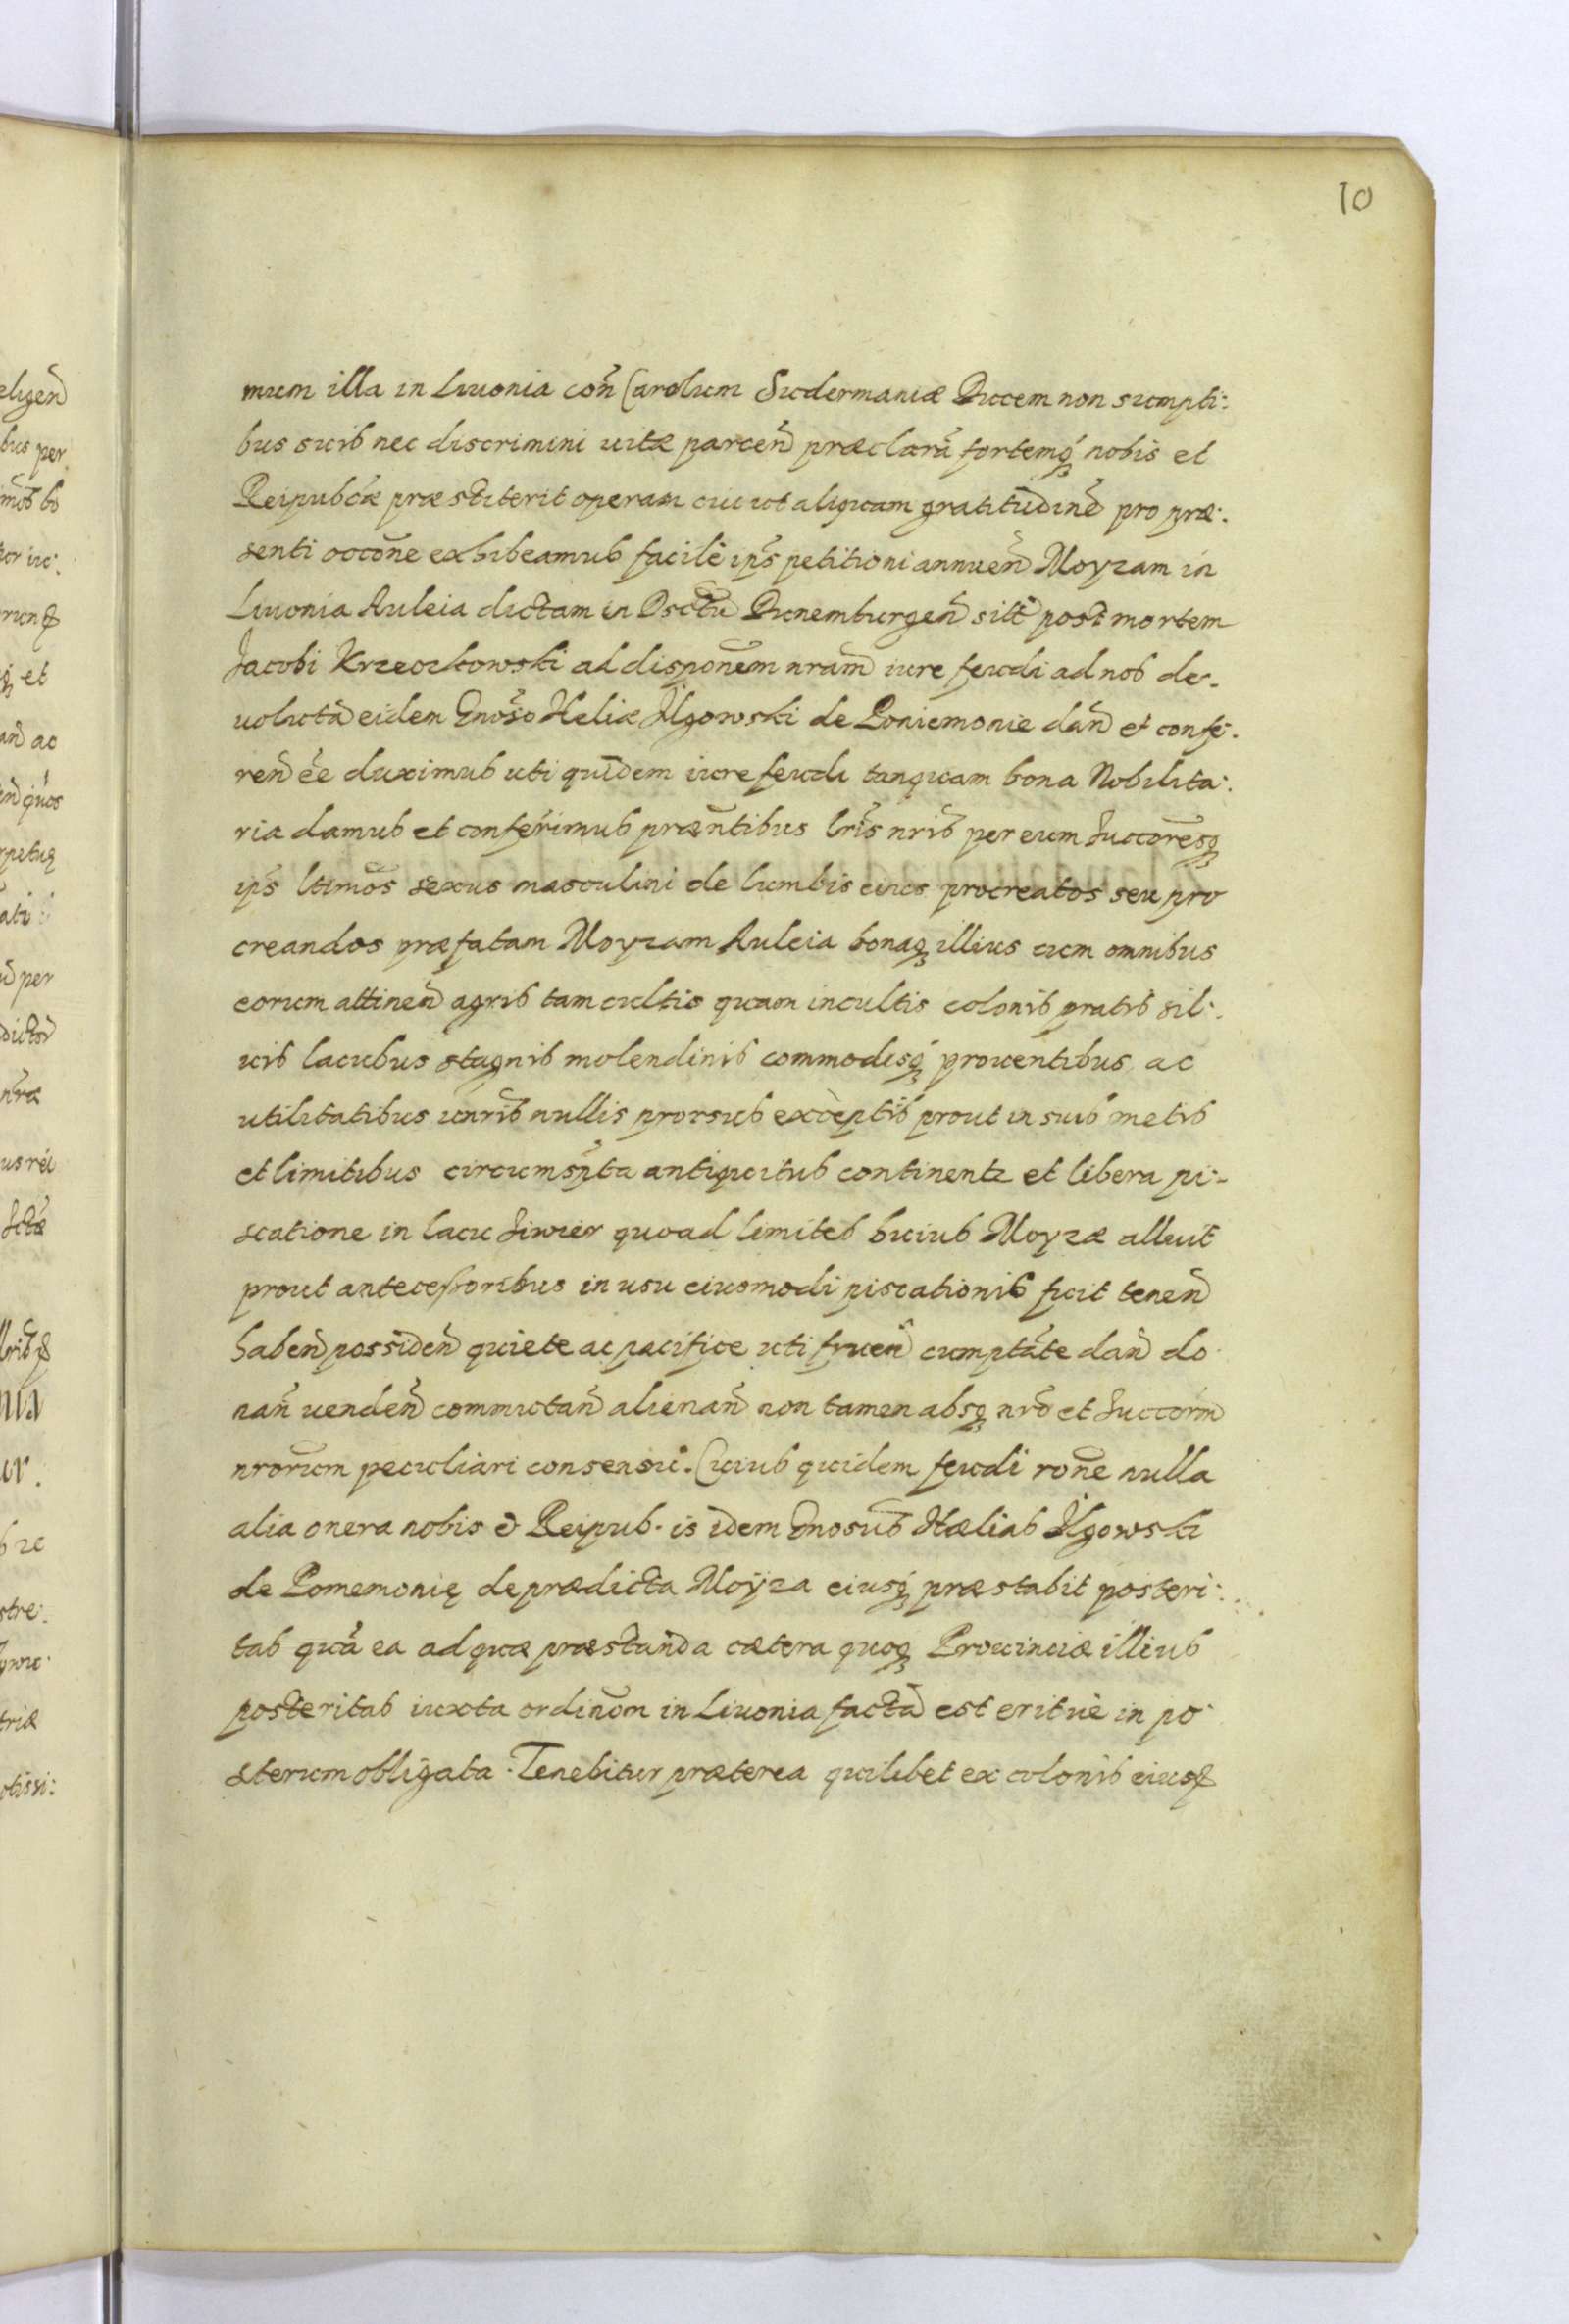 10
mum illa in Liuonia con̄ Carolum Sudermaniæ Ducem non sumpti:
bus suis nec discrimini uitæ parcen̄ præclarā fortemq́ nobis et
Reipubcæ præstiterit operam cui ut aliquam gratitudinē pro præ:
senti occōne exhibeamus facile ip̄s petitioni annuen̄ Moyzam in
Liuonia Ruleia dictam in Dsctu Dunemburgen̄ sitā post mortem
Jacobi Krzeczkowski ad disponēm nram̄ iure feudi ad nos de-
uolutā eidem Gnōso Heliæ Ilgowski de Poniemonie dan̄ et confe:
ren̄ ēe duximus uti quidem iure feudi tanquam bona Nobilita:
ria damus et conferimus præn̄tibus lr̄is nrīs per eum Succoresq̄
ip̄s ltimōs sexus masculini de lumbis eius procreatos seu pro
creandos præfatam Moyzam Ruleia bonaq̨ illius cum omnibus
eorum attinen̄ agris tam cultis quam incultis colonis pratis sil:
uis lacubus stagnis molendinis commodisq́ prouentibus ac
utilitatibus unr̄is nullis prorsus exceptis prout in suis metis
et limitibus circumsp̄ta antiquitus continentr et libera pi-
scatione in lacu Siwer quoad limites huius Moyzæ alluit
prout antecessoribus in usu eiusmodi piscationis fuit tenen̄
haben̄ possiden̄ quiete ac pacifice uti fruen̄ cumptāte dan̄ do
nan̄ uenden̄ commutan̄ alienan̄ non tamen absq̨ nrō et Succorm̄
nrōrum peculiari consensu. Cuius quidem feudi rōne nulla
alia onera nobis & Reipub. is idem Gnosūs Hælias Ilgowski
de Pomemonię de prædicta Moÿza eiusq́ præstabit posteri:
tas quā ea ad quæ præstanda cætera quoq̨ Prouinciæ illius
posteritas iuxta ordinōm in Liuonia factā est eritue in po
sterum obligata. Tenebitur præterea quilibet ex colonis eiusq̄